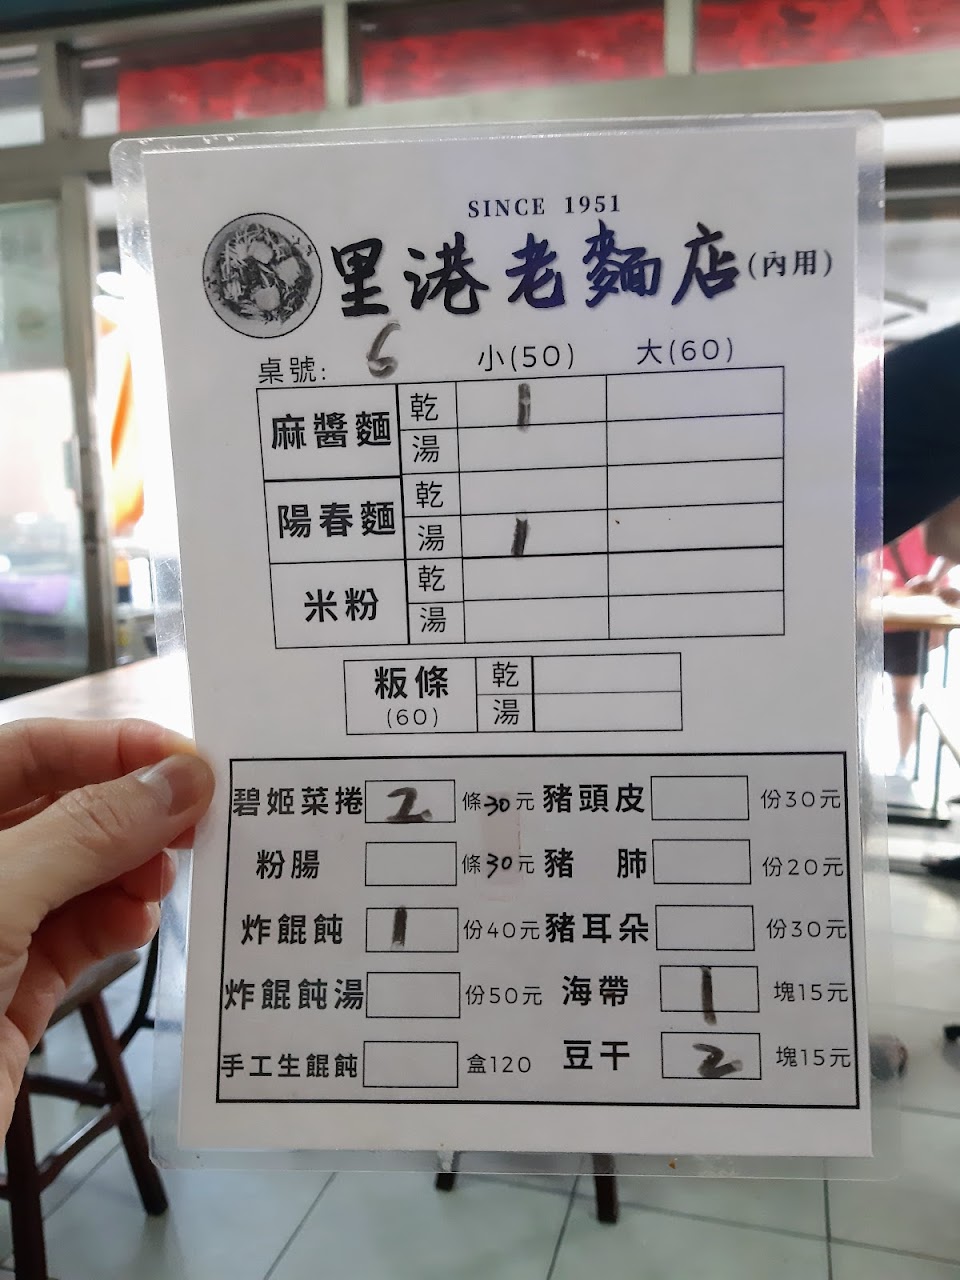 SINCE 1951
里港老麵店(內用)
桌號: 6 小(50) 大(60)
麻醬麵 乾 1
湯
陽春麵 乾
湯 1
米粉 乾
湯
粄條 (60) 乾
湯
碧姬菜捲 2 條30元 豬頭皮 份30元
粉腸 條30元 豬肺 份20元
炸餛飩 1 份40元 豬耳朵 份30元
炸餛飩湯 份50元 海帶 1 塊15元
手工生餛飩 盒120 豆干 2 塊15元